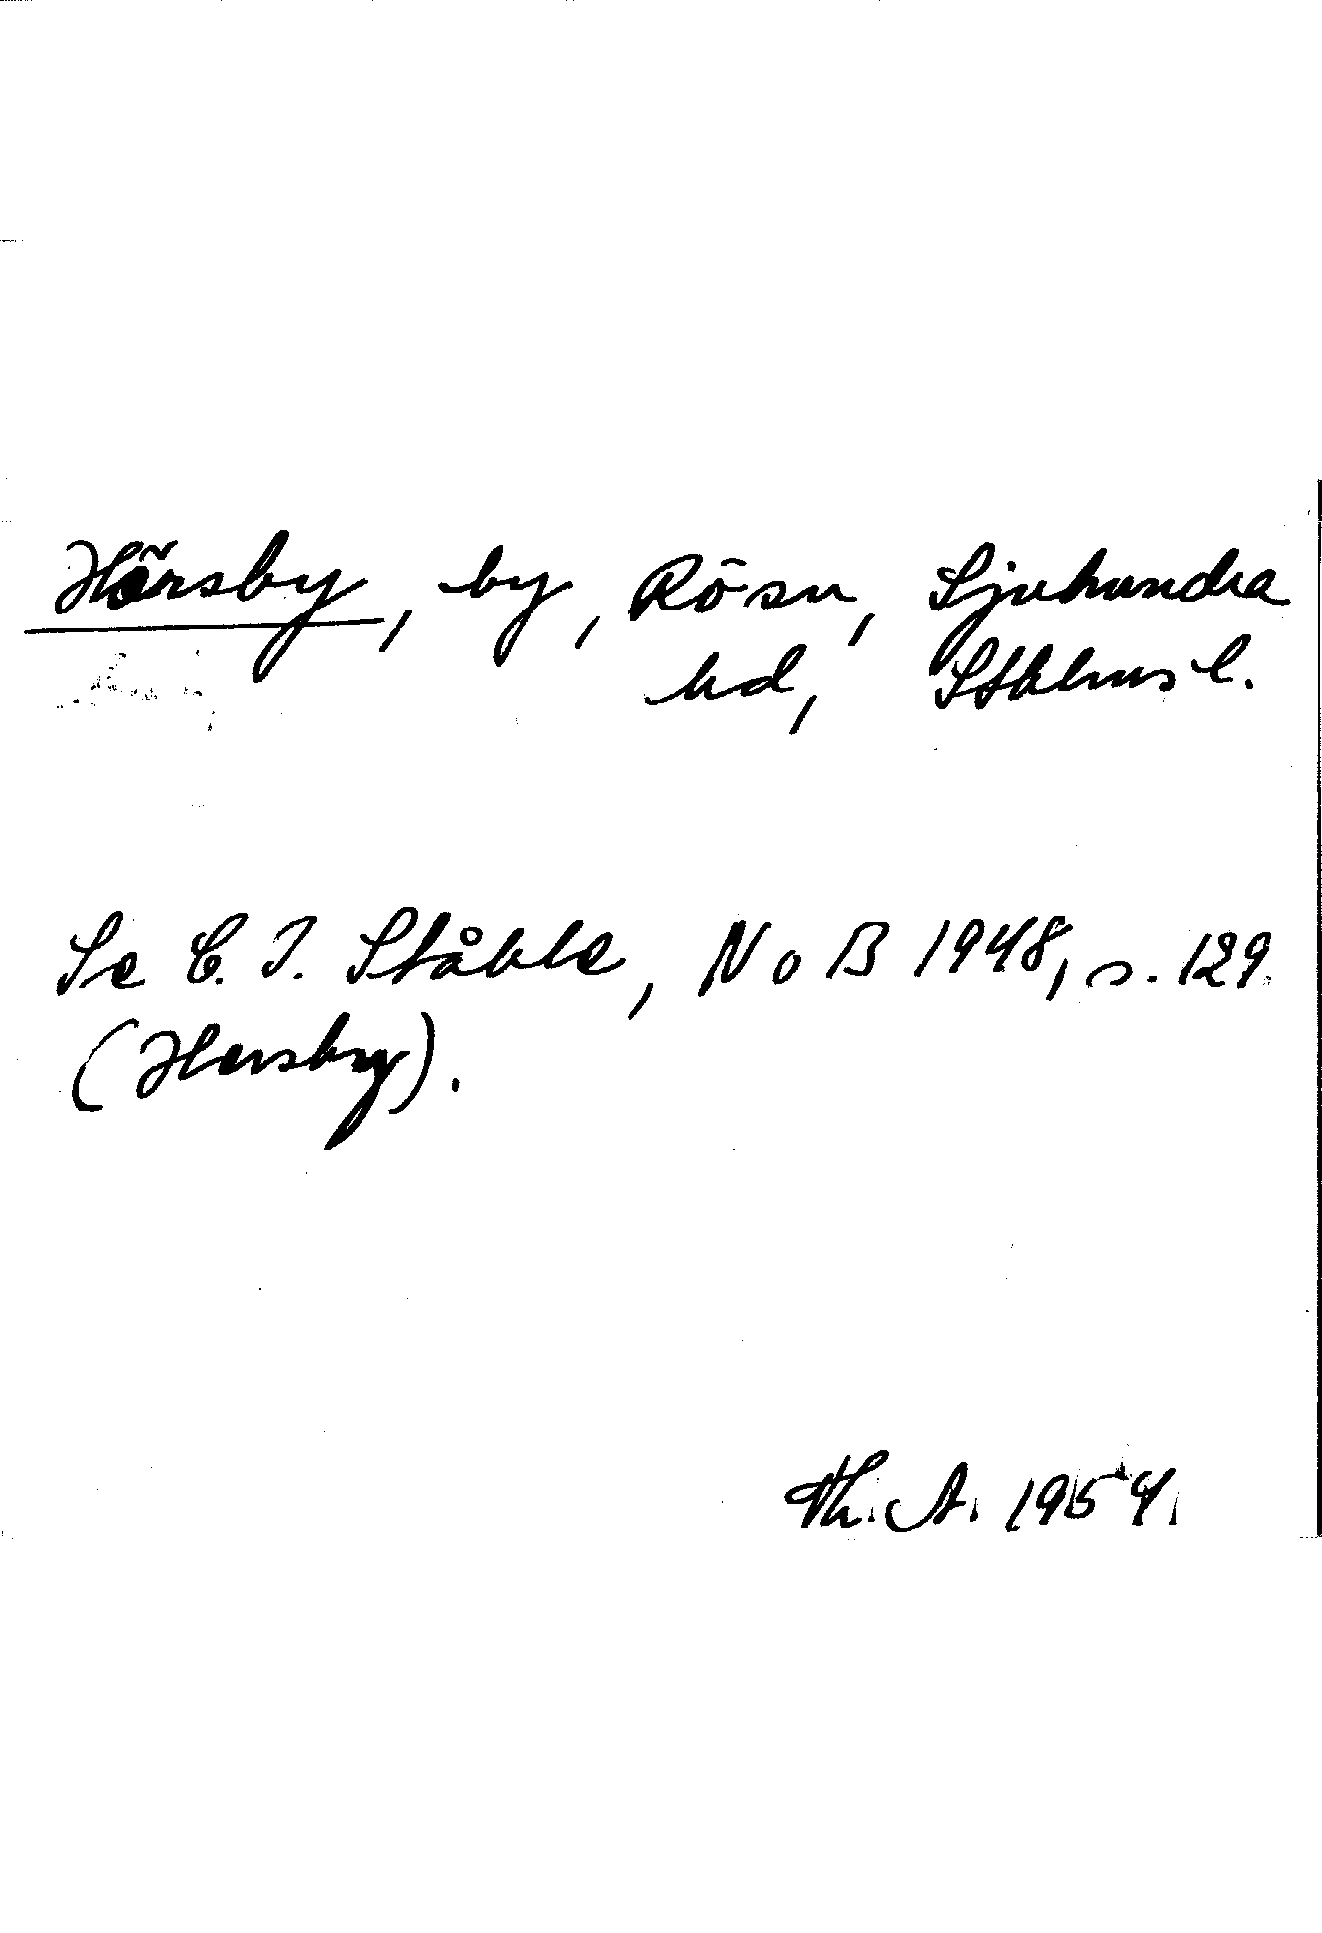 Hörsby, by, Rö sn, Sjuhundra
hd, Sthlms l.
Se C. I. Ståhle, NoB 1948, s. 129
(Hersby).
Th. A. 1954.